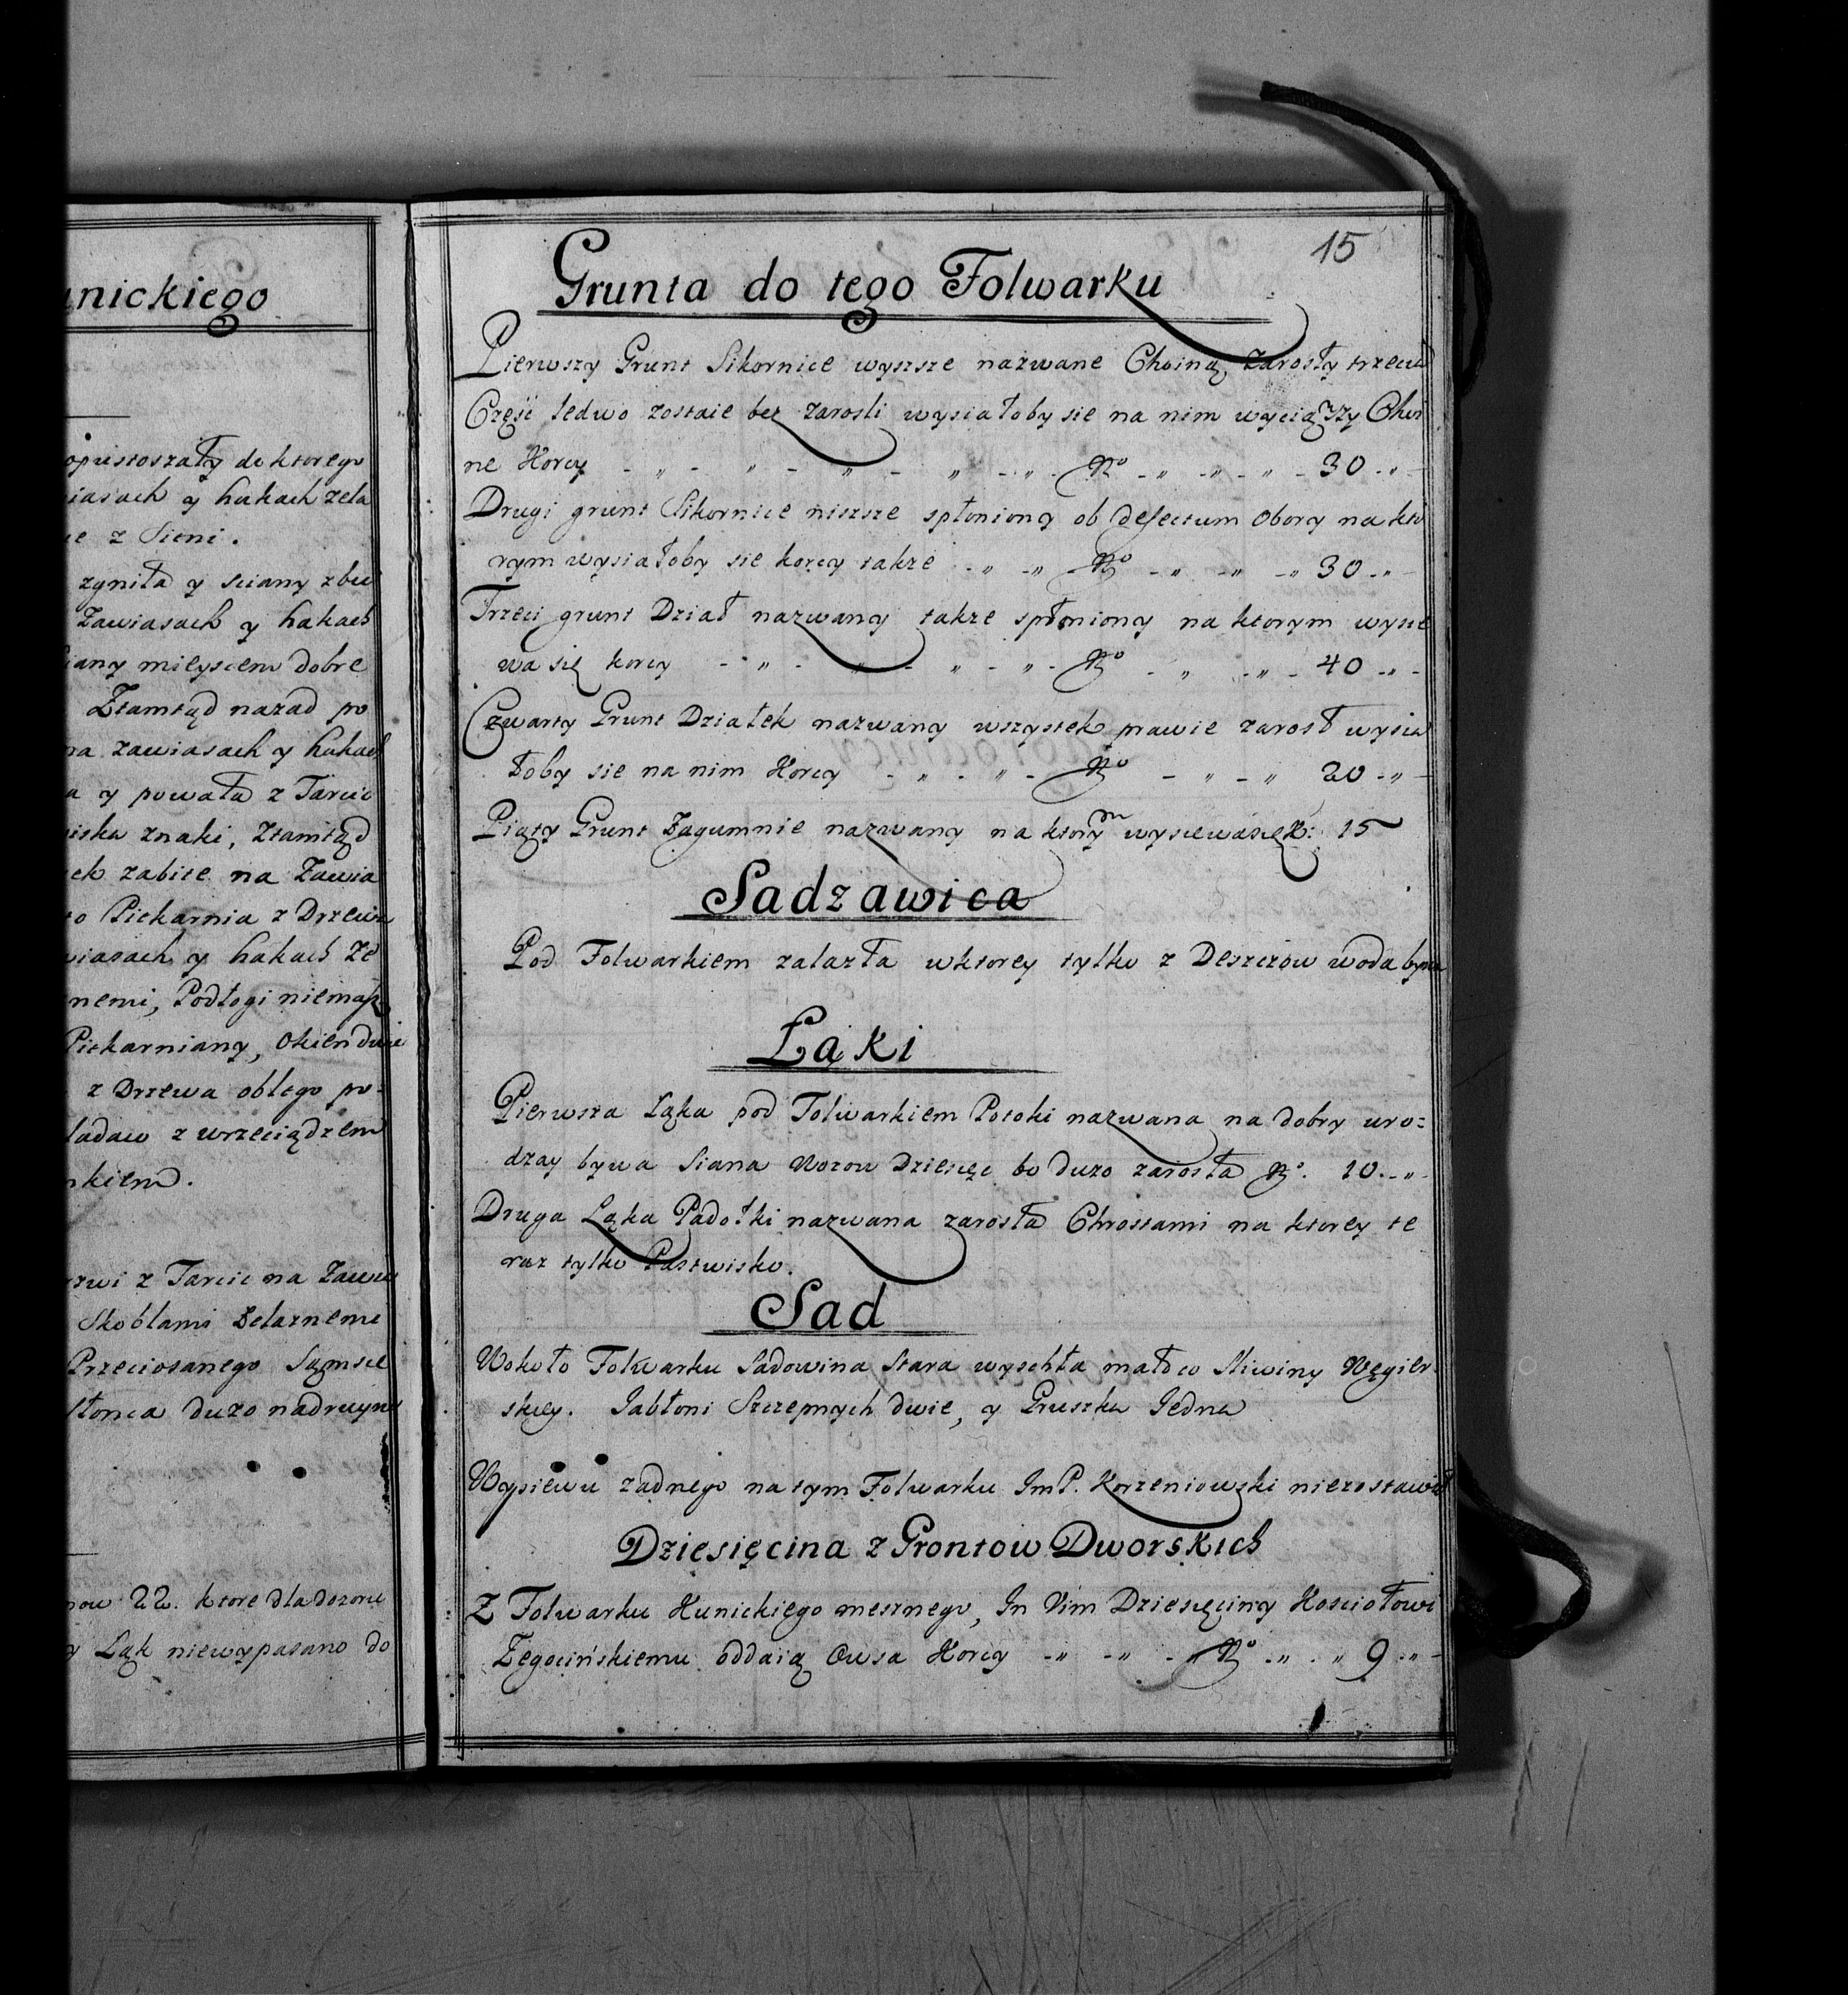 unickiego
opustoszały do ktorego
iasach y hakach zela
ie z Sieni.
zgniła y sciany zbu
Zawiasach y hakach
iany mieyscem dobre
Ztamtąd nazad po
na zawiasach y hakach
a y powała z Tarcic
iska znaki, Ztamtąd
ek zabite na Zawia
to Piekarnia z Drzewa
wiasach y hakach Ze
nemi, Podłogi niemasz
Piekarniany, Okien dwie
z Drzewa obłego po-
ładaw z wrzeciądzem
kiem.
rzwi z Tarcic na Zawia
Skoblami Żelaznemi
Przeciosanego Sąmsie
słonca dużo nadruyn
now 22. ktore dla dozoru
y Łąk niewypasano do
15
Grunta do tego Folwarku
Pierwszy Grunt Sikornice wyższe nazwane Choiną, Zarosły trzecia
Część ledwo zostaie bez zarosli wysiałoby sie na nim wyciąwszy Choi
ne Korcy - " - " - " - " - " - No - " - " - " - 30 - " -
Drugi grunt Sikornice nizsze spłoniony ob defectum Obory na któ
rym wysiałoby sie korcy takze - " - " - No - " - " - " 30 - " -
Trzeci grunt Dział nazwany takze spłoniony na ktorym wysie
wa się korcy - " - " - " - " - No - " - " - 40 - " -
Czwarty Grunt Działek nazwany wszystek prawie zarosł wysia
łoby sie na nim Korcy - " - " - No - " - " 20 - " -
Piąty Grunt Zagumnie nazwany na ktorym wysiewa się K: 15
Sadzawica
Pod Folwarkiem zalazła wktorey tylko z Deszczow woda bywa
Łąki
Pierwsza Łąka pod Folwarkiem Potoki nazwana na dobry uro=
dzay bywa Siana Wozow Dziesięc bo duzo zarosła No. 10. - " -
Druga Łąka Padołki nazwana zarosła Chrostami na ktorey te
raz tylko Pastwisko.
Sad
Wokoło Folwarku Sadowina Stara wyschła mało co Sliwiny Węgier-
skiey. Jabłoni Szczepnych dwie, y Gruszka Jedna
Wysiewu zadnego na tym Folwarku Im P. Korzeniowski niezostawił
Dziesięcina z Grontow Dworskich
Z Folwarku Kunickiego mesznego, In Vim Dziesięciny Kosciołowi
Żegocińskiemu oddaią Owsa Korcy - " - " - No - " - " 9 - " -